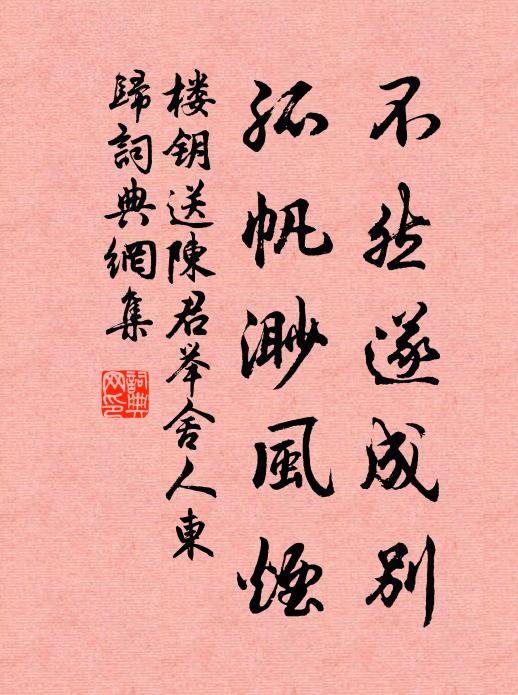 不然遂成別
孤帆渺風煙
楼钥送陳君举舍人東
歸詞典網集
詞典
网印